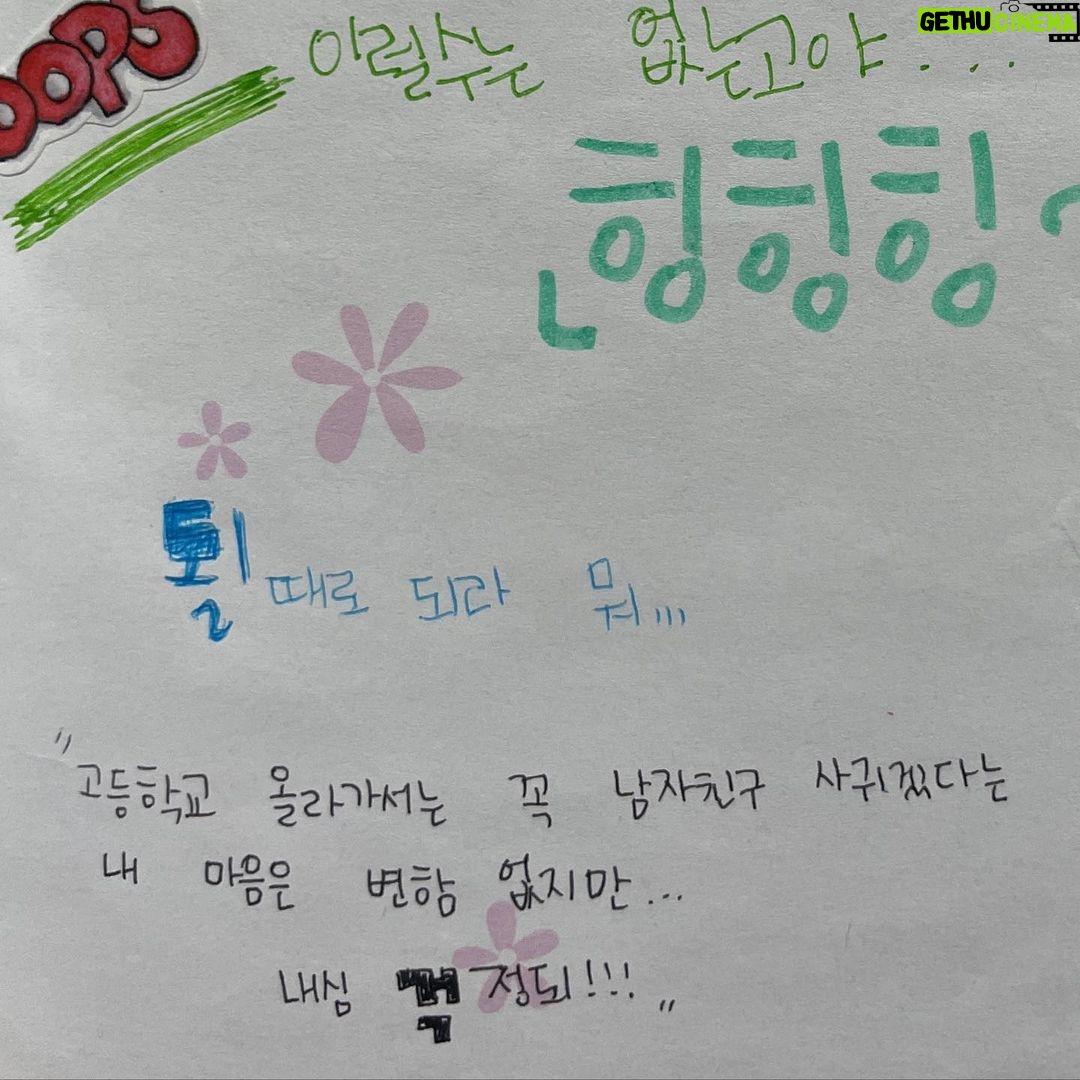 GETHUCINEMA
OOPS
이럴수는 없는고야...
힝힝힝
될때로 되라 뭐...
"고등학교 올라가서는 꼭 남자친구 사귀겠다는
내 마음은 변함 없지만...
내심 걱정되!!!"